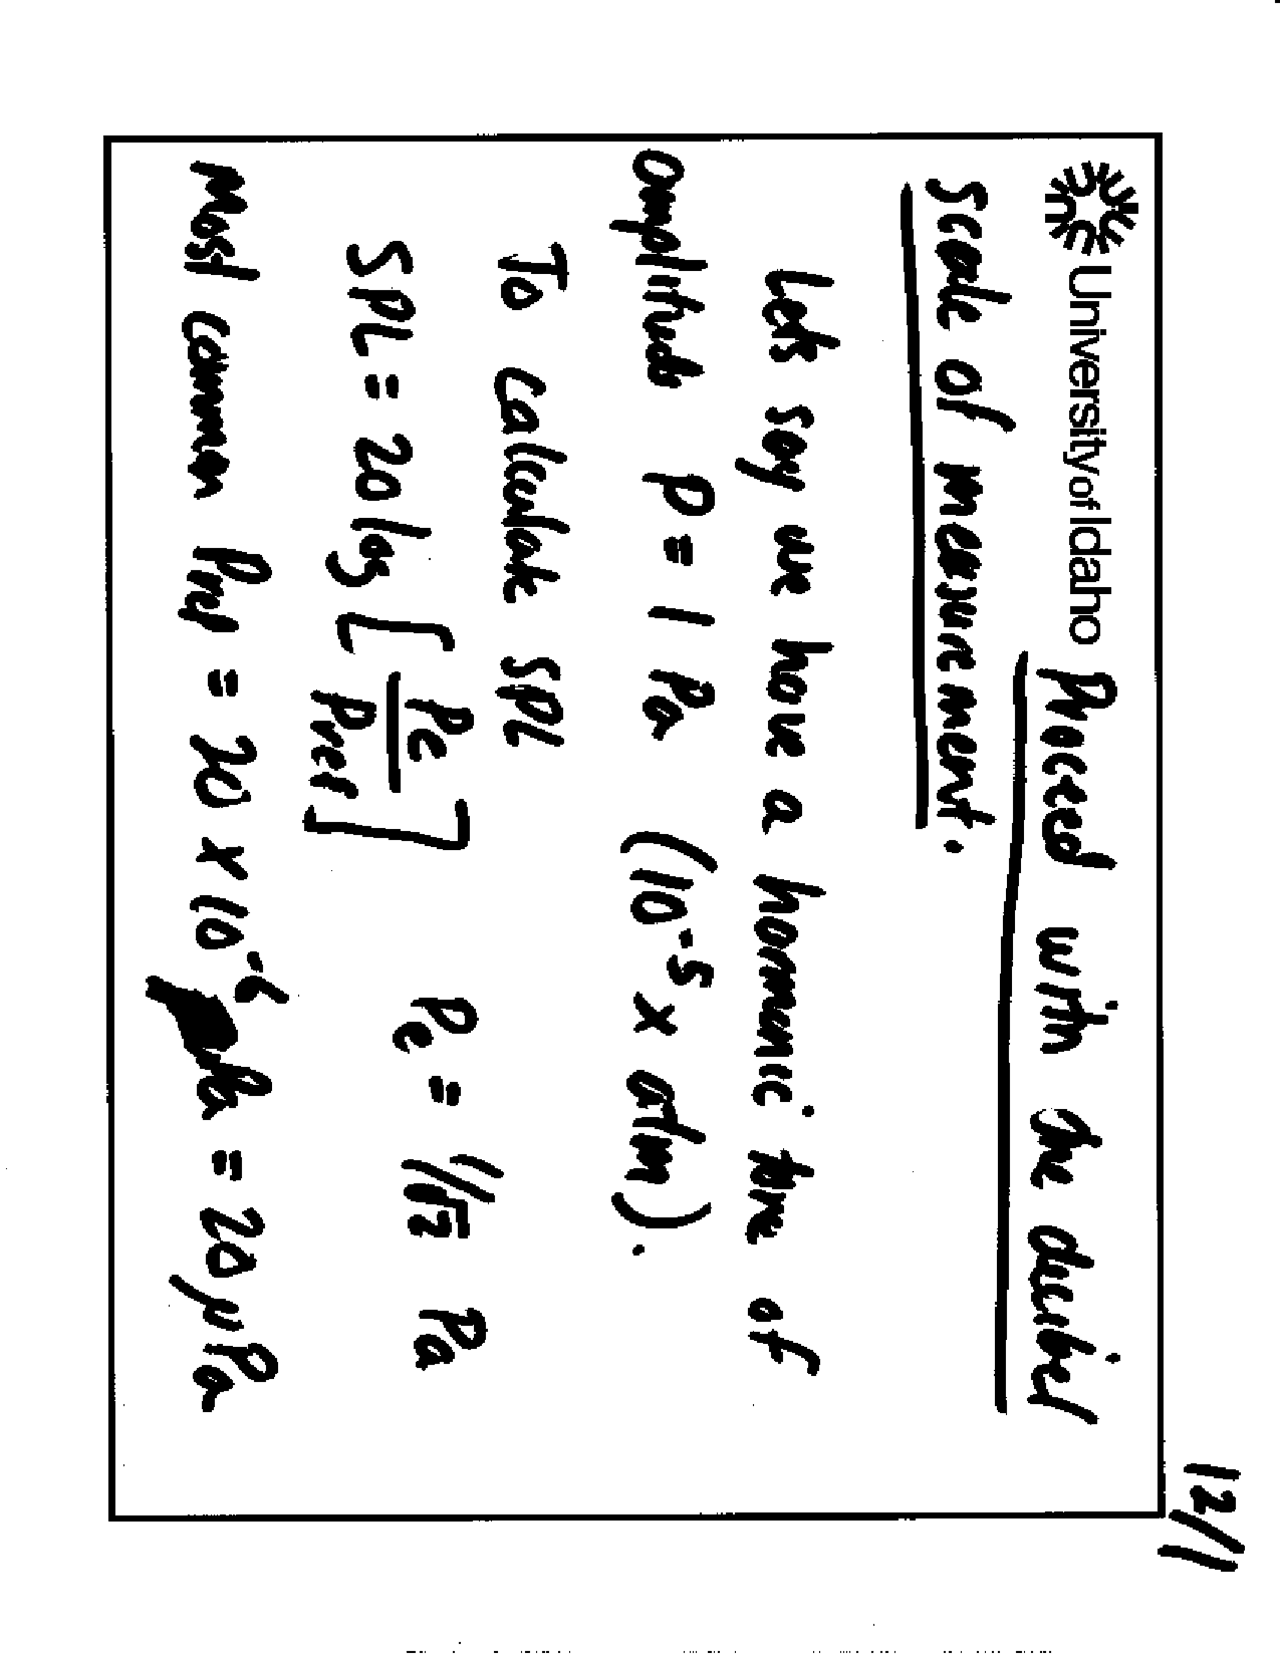 12/1
University of Idaho Proceed with the decibel
Scale of measurement.
Lets say we have a harmonic tone of
amplitude P = 1 Pa (10⁻⁵ x atm).
To Calculate SPL
SPL = 20 log [Pe/Pref] Pe = 1/√2 Pa
Most common Pref = 20 x 10⁻⁶ Pa = 20 μPa